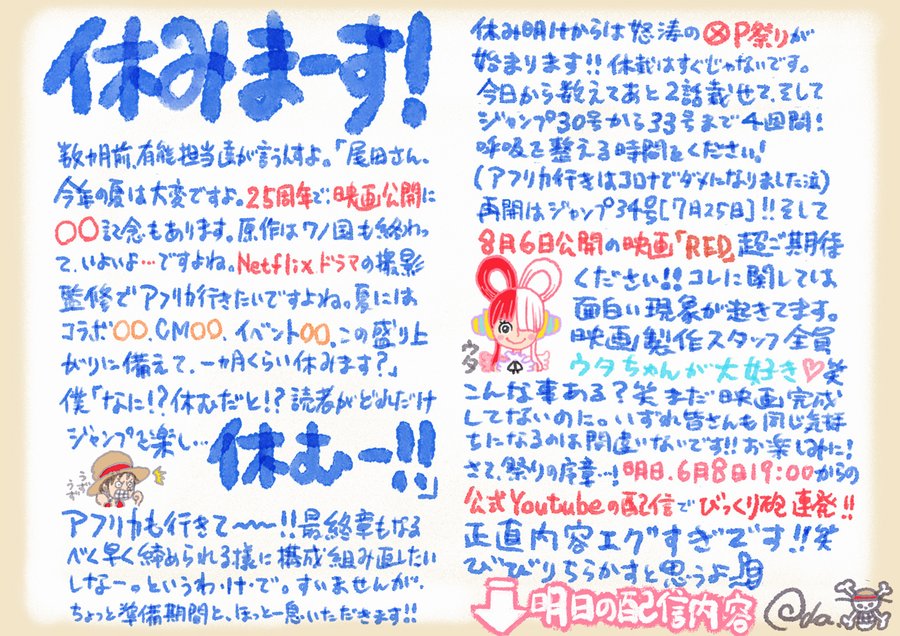 休みまーす!
数ヵ月前、有能担当達が言うんすよ。「尾田さん、
今年の夏は大変ですよ。25周年で、映画公開に
〇〇記念もあります。原作はワノ国も終わっ
て、いよいよ…ですよね。Netflixドラマの撮影
監修でアフリカ行きたいですよね。夏には
コラボ〇〇、CM〇〇、イベント〇〇。この盛り上
がりに備えて、一ヵ月くらい休みます?」
僕「なに!?休むだと!?読者がどれだけ
ジャンプを楽し…
休むー!!」
うずうず
アフリカも行きて〜〜!!最終章もなる
べく早く締められる様に構成組み直したい
しなー。というわ・け・で。すいませんが、
ちょっと準備期間と、ほっと一息いただきます!!
休み明けからは怒涛の⊗P祭りが
始まります!!休載はすぐじゃないです。
今日から数えてあと2話載せて、そして
ジャンプ30号から33号まで4週間!
呼吸を整える時間をください!
(アフリカ行きはコロナでダメになりました泣)
再開はジャンプ34号[7月25日]!!そして
8月6日公開の映画「RED」超ご期待
ください!!コレに関しては
面白い現象が起きてます。
映画製作スタッフ全員
ウタちゃんが大好き♡笑
ウタ
こんな事ある?笑 まだ映画完成
してないのに。いずれ皆さんも同じ気持
ちになるのは間違いないです!!お楽しみに!
さて、祭りの序章…!明日、6月8日19:00からの
公式Youtubeの配信でびっくり砲連発!!
正直内容エグすぎです!!笑
びびりちらかすと思うよ
明日の配信内容
Oda.